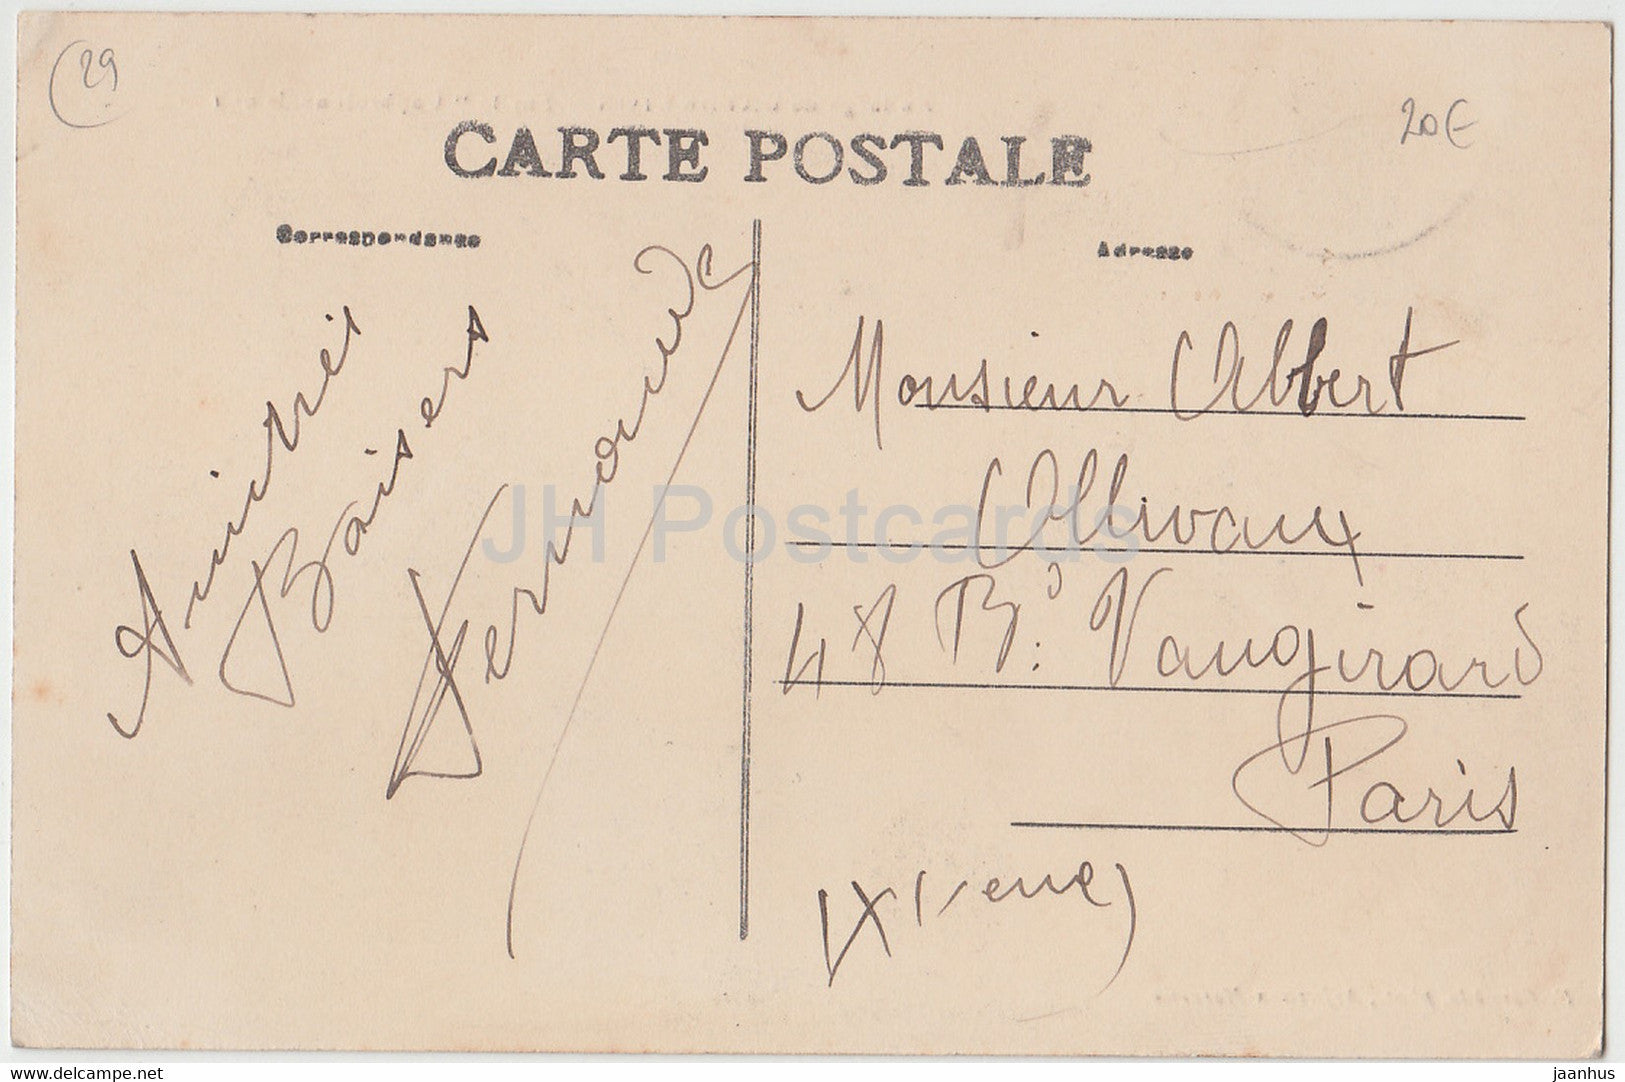 29
20€
CARTE POSTALE
Correspondance
Adresse
Amitiés
Baisers
Fernande
Monsieur Albert
Ollivaux
48 Bd: Vaugirard
Paris
IX(ième)
JH Postcards
delcampe.net
jaanhus